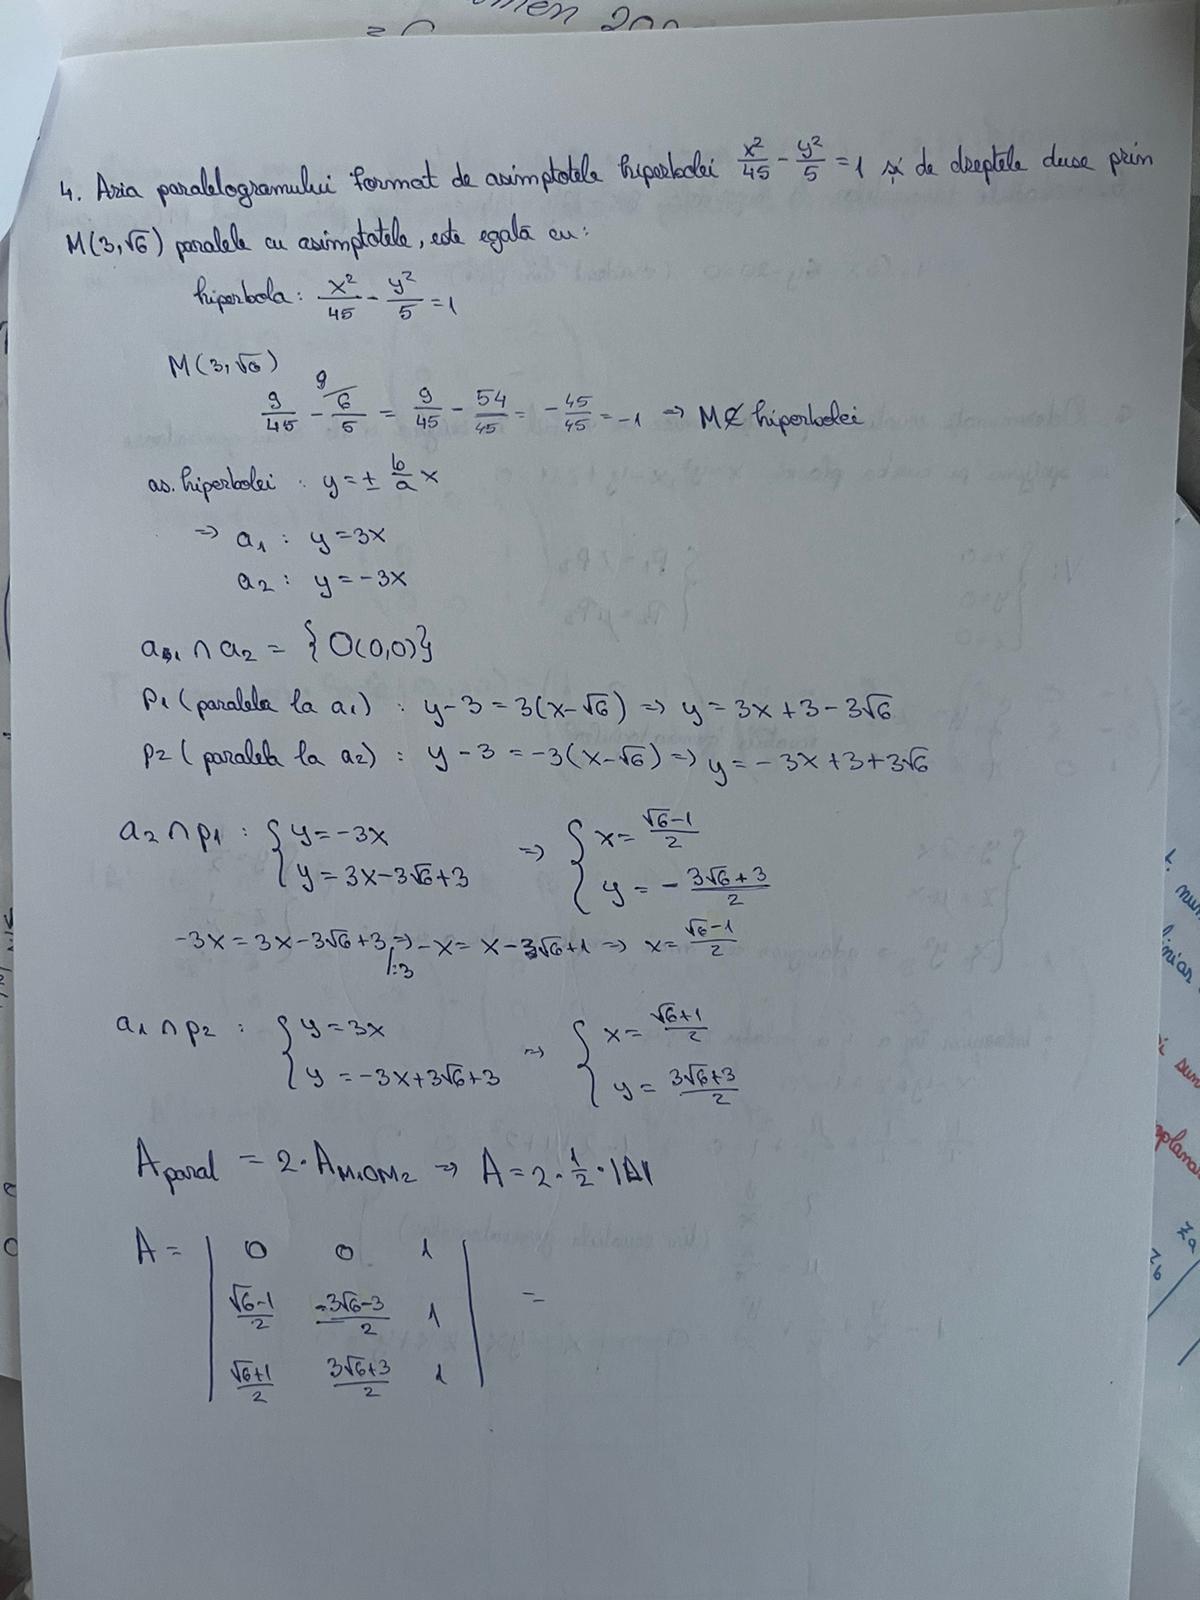 4. Aria paralelogramului format de asimptotele hiperbolei x²/45 - y²/5 = 1 și de dreptele duse prin
M(3,√6) paralele cu asimptotele, este egală cu:
hiperbola: x²/45 - y²/5 = 1
M(3,√6)
9/45 - ⁹⁾6/5 = 9/45 - 54/45 = -45/45 = -1 => M∉ hiperbolei
as. hiperbolei : y = ± b/a x
=> a₁ : y = 3x
a₂ : y = -3x
a₁ ∩ a₂ = {O(0,0)}
P₁ (paralela la a₁) : y-3 = 3(x-√6) => y = 3x+3-3√6
P₂ (paralela la a₂) : y-3 = -3(x-√6) => y = -3x+3+3√6
a₂ ∩ p₁ : { y = -3x => { x = (√6-1)/2
y = 3x-3√6+3 y = - (3√6+3)/2
-3x = 3x-3√6+3 /:3 => -x = x-√6+1 => x = (√6-1)/2
a₁ ∩ p₂ : { y = 3x => { x = (√6+1)/2
y = -3x+3√6+3 y = (3√6+3)/2
A paral = 2·A M₁OM₂ => A = 2·1/2·|Δ|
A = | 0 0 1 |
| (√6-1)/2 (-3√6-3)/2 1 | =
| (√6+1)/2 (3√6+3)/2 1 |